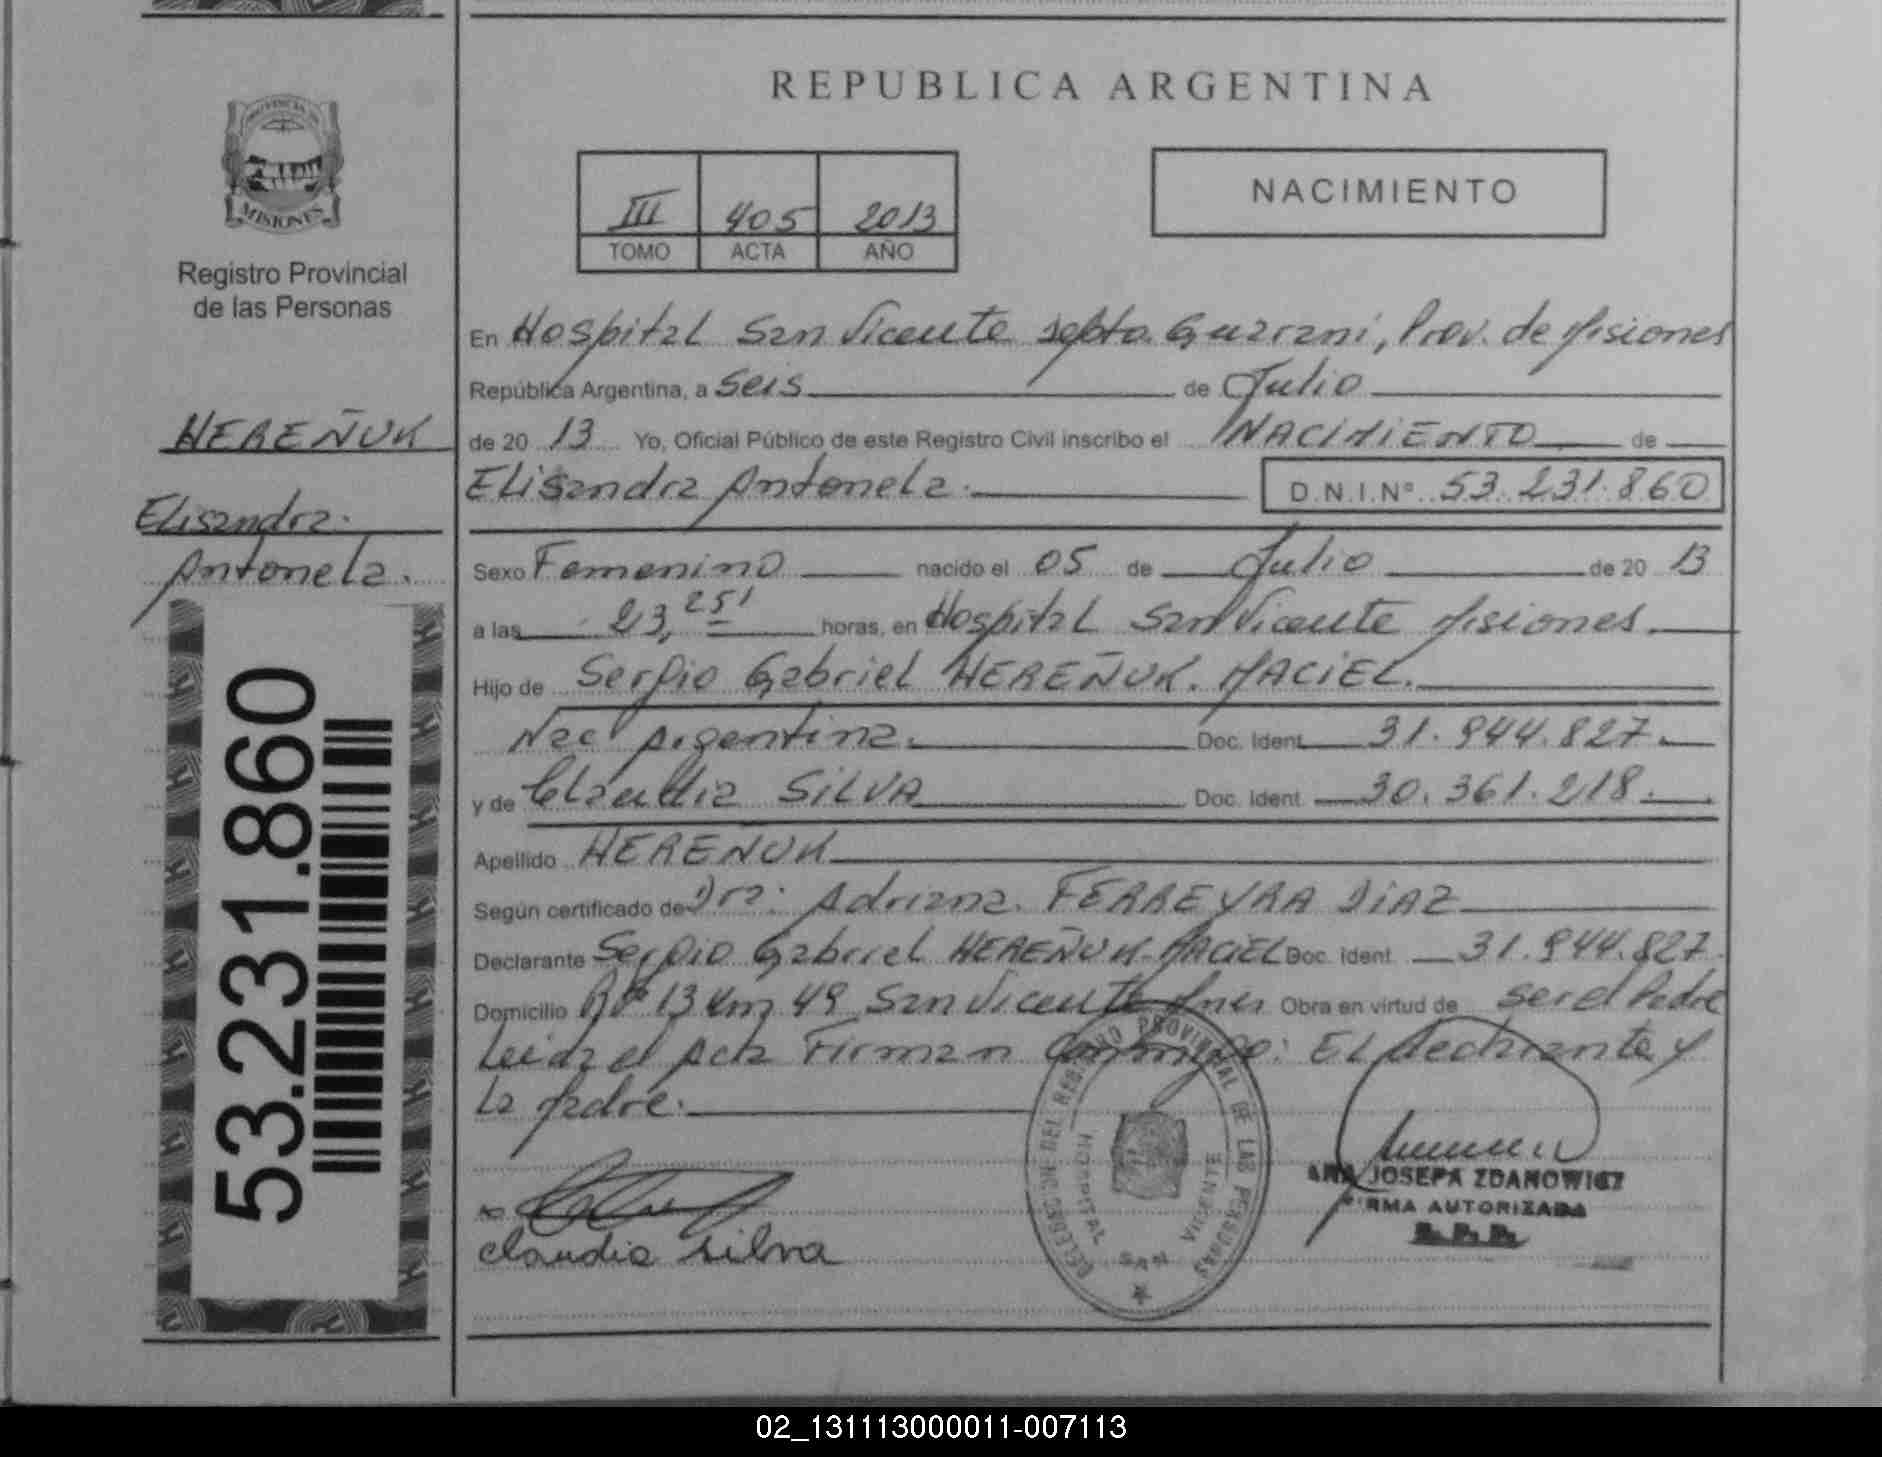 REPUBLICA ARGENTINA
PROVINCIA DE
MISIONES
Registro Provincial
de las Personas
III 405 2013
TOMO ACTA AÑO
NACIMIENTO
HEREÑUK
Elisandra
Antonela.
53.231.860
En Hospital San Vicente Depto. Guarani, Prov. de Misiones
República Argentina, a Seis de Julio
de 20 13 Yo, Oficial Público de este Registro Civil inscribo el NACIMIENTO de
Elisandra Antonela. D.N.I.Nº 53.231.860
Sexo Femenino nacido el 05 de Julio de 20 13
a las 23,25' horas, en Hospital San Vicente Misiones.
Hijo de Sergio Gabriel HEREÑUK. MACIEL.
Nac Argentina. Doc. Ident. 31.944.827.
y de Claudia SILVA Doc. Ident. 30.361.218.
Apellido HEREÑUK
Según certificado de Dra: Adriana. FERREYRA DIAZ
Declarante Sergio Gabriel HEREÑUK-MACIEL Doc. Ident. 31.944.827.
Domicilio R Nº 13 Km 49 San Vicente Mnes Obra en virtud de ser el Padre
Leida el Acta Firman Conmigo: El declarante y
La Madre.
claudia silva
DELEGACION DEL REGISTRO PROVINCIAL DE LAS PERSONAS
HOSPITAL SAN VICENTE
ANA JOSEFA ZDANOWICZ
FIRMA AUTORIZADA
R.P.P.
02_131113000011-007113